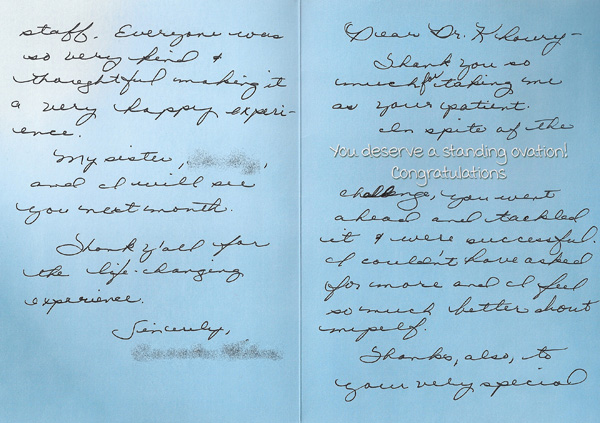 Dear Dr. Khoury-
Thank you so
much for taking me
as your patient.
In spite of the
You deserve a standing ovation!
Congratulations
challenge, you went
ahead and tackled
it & were successful.
I couldn't have asked
for more and I feel
so much better about
myself.
Thanks, also, to
your very special
staff. Everyone was
so very kind &
thoughtful making it
a very happy experi-
ence.
My sister, ,
and I will see
you next month.
Thank y'all for
the life-changing
experience.
Sincerely,